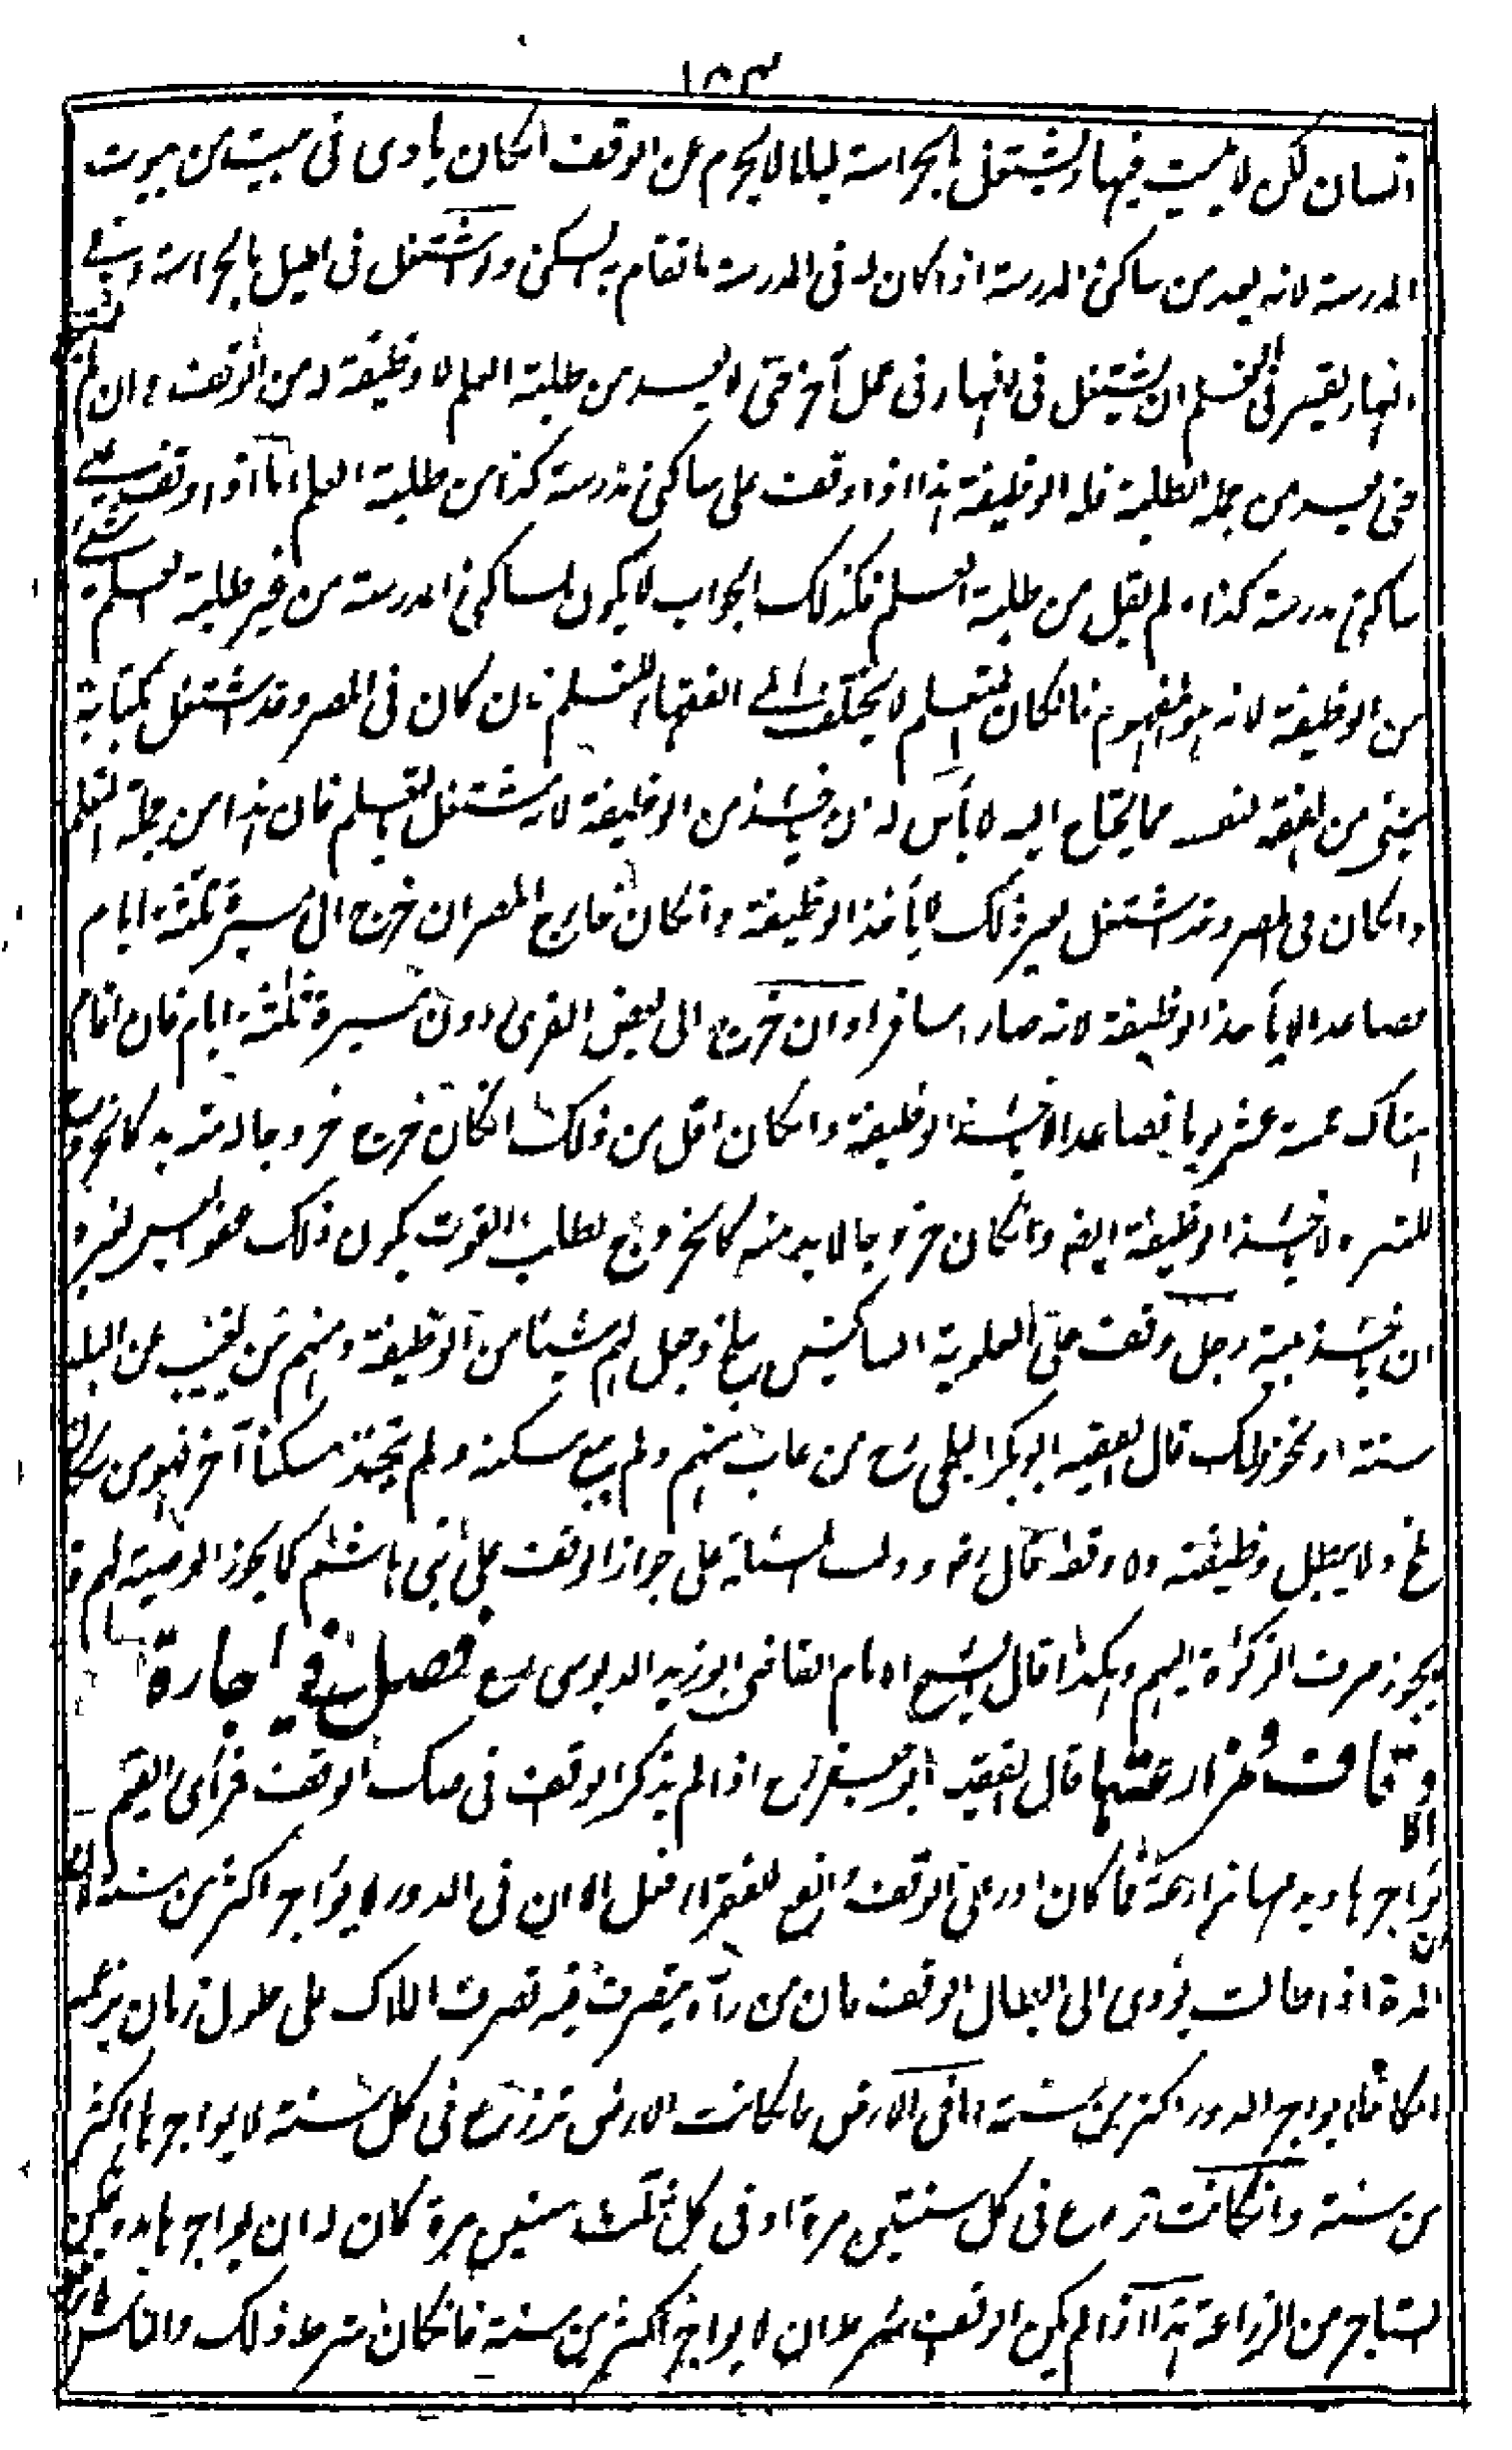 انسان لكن لا يبيت فيها ويشتغل بالحراسة ليلا لا يحرم عن الوقف انكان ياوى فى بيت من بيوت
المدرسة لانه يعد من ساكنى المدرسة اذا كان له فى المدرسة ما تقام به السكنى ولو اشتغل فى الليل بالحراسة وفى
النهار يقصر فى التعلم ان يشتغل فى النهار فى عمل آخر حتى لا يعد من طلبة العلم لا وظيفة له من الوقف وان لم يشتغل
حتى يعد من جملة الطلبة فله الوظيفة هذا اذا وقف على ساكنى مدرسة كذا من طلبة العلم اما اذا وقف على
ساكنى مدرسة كذا ولم يقل من طلبة العلم فكذلك الجواب لا يكون لساكنى المدرسة من غير طلبة العلم شئ
من الوظيفة لانه هو المفهوم فانكان المتعلم لا يختلف الى الفقهاء للتعلم فان كان فى المصر وقد اشتغل بكتابة
شئ من الفقه لنفسه مما يحتاج اليه لا بأس له ان ياخذ من الوظيفة لانه مشتغل بالتعلم فان هذا من جملة التعلم
وانكان فى المصر وقد اشتغل بغير ذلك لا يأخذ الوظيفة وانكان خارج المصر ان خرج الى مسيرة ثلثة ايام
فصاعدا لا يأخذ الوظيفة لانه صار مسافرا وان خرج الى بعض القرى دون مسيرة ثلثة ايام فان اقام
هناك خمسة عشر يوما فصاعدا لا ياخذ الوظيفة وانكان اقل من ذلك انكان خرج خروجا له منه بد كالخروج
للتنزه لا ياخذ الوظيفة ايضا وانكان خروجا لا بد منه كالخروج لطلب القوت يكون ذلك عفوا ليس لغيره
ان ياخذ بيته رجل وقف على العلوية الساكنين ببلخ وجعل لهم شيئا من الوظيفة ومنهم من يغيب عن البلد
سنة او نحو ذلك قال الفقيه ابو بكر البلخى رح من غاب منهم ولم يبع مسكنه ولم يتخذ مسكنا آخر فهو من سكان
بلخ ولا يبطل وظيفته ولا وقفه قال رض ودلت المسئلة على جواز الوقف على بنى هاشم كما يجوز الوصية لهم و
يجوز صرف الزكوة اليهم وهكذا قال الشيخ الامام القاضى ابو زيد الدبوسى رح فصل فى اجارة
الاوقاف ومزارعتها قال الفقيه ابو جعفر رح اذا لم يذكر الوقف فى صك الوقف فرأى القيم
ان يواجرها ويدفعها مزارعة فما كان ادر على الوقف وانفع للفقراء فعل الا ان فى الدور لا يواجر اكثر من سنة لان
المدة اذا طالت يؤدى الى ابطال الوقف فان من رآه يتصرف فيه تصرف الملاك على طول زمان يزعمه
مالكا فلا يواجر الدور اكثر من سنة اما فى الارض فان كانت الارض تزرع فى كل سنة لا يواجرها اكثر
من سنة وانكانت تزرع فى كل سنتين مرة او فى كل ثلث سنين مرة كان له ان يواجرها مدة يتمكن
المستاجر من الزراعة هذا اذا لم يكن الوقف شرط ان لا يواجر اكثر من سنة فانكان شرط ذلك والناس